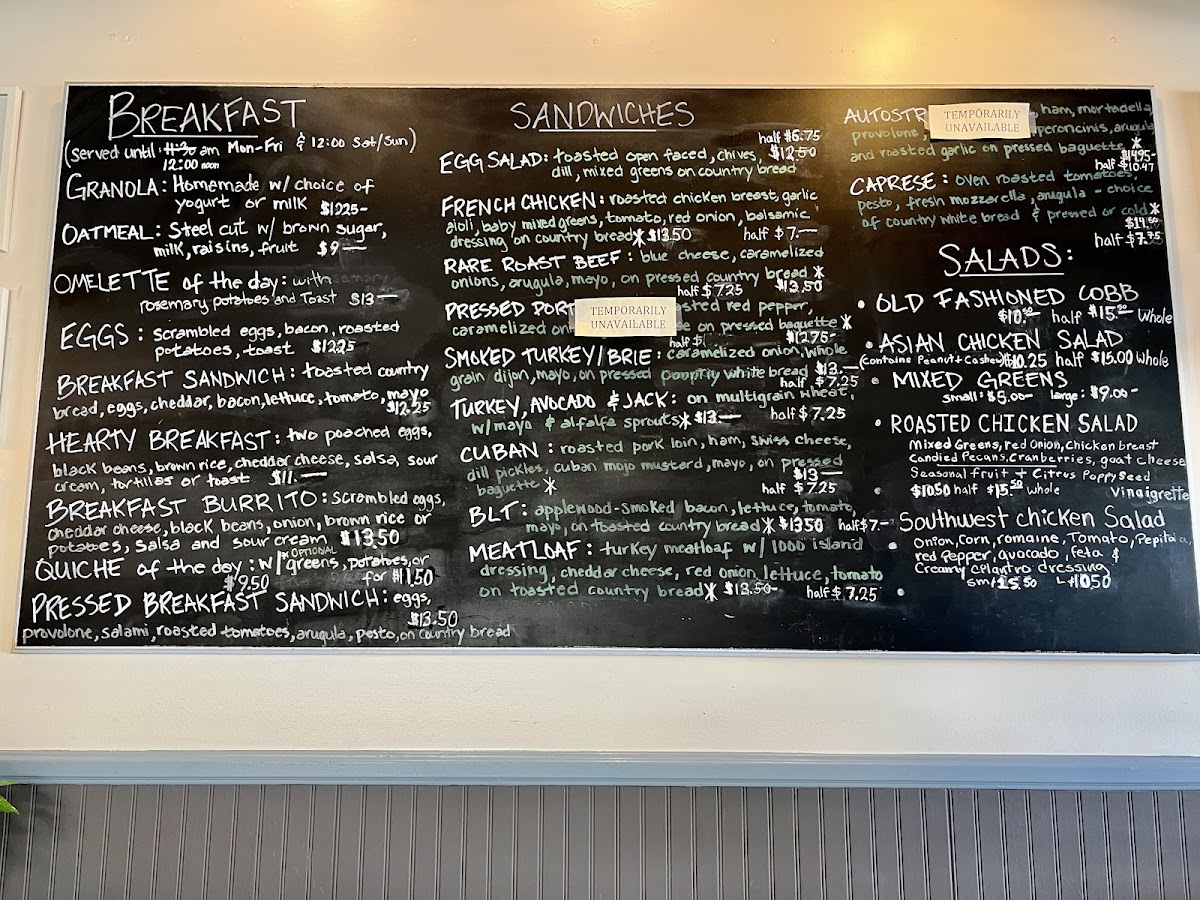 BREAKFAST
(served until 11:30 am Mon-Fri & 12:00 Sat/Sun)
12:00 noon
GRANOLA: Homemade w/ choice of
yogurt or milk $12.25-
OATMEAL: Steel cut w/ brown sugar,
milk, raisins, fruit $9-
OMELETTE of the day: with
rosemary potatoes and Toast $13-
EGGS: scrambled eggs, bacon, roasted
potatoes, toast $12.25
BREAKFAST SANDWICH: toasted country
bread, eggs, cheddar, bacon, lettuce, tomato, mayo
$12.25
HEARTY BREAKFAST: two poached eggs,
black beans, brown rice, cheddar cheese, salsa, sour
cream, tortillas or toast $11.-
BREAKFAST BURRITO: scrambled eggs,
cheddar cheese, black beans, onion, brown rice or
potatoes, salsa and sour cream $13.50
QUICHE of the day: w/ *OPTIONAL greens, potatoes, or
$9.50 for $11.50
PRESSED BREAKFAST SANDWICH: eggs,
$13.50
provolone, salami, roasted tomatoes, arugula, pesto, on country bread
SANDWICHES
half $6.75
EGG SALAD: toasted open faced, chives, $12.50
dill, mixed greens on country bread
FRENCH CHICKEN: roasted chicken breast, garlic
aioli, baby mixed greens, tomato, red onion, balsamic
dressing on country bread* $13.50 half $7.-
RARE ROAST BEEF: blue cheese, caramelized
onions, arugula, mayo, on pressed country bread *
half $7.25 $13.50
PRESSED PORT TEMPORARILY UNAVAILABLE sted red pepper,
caramelized on e on pressed baguette *
half $ $12.75-
SMOKED TURKEY/BRIE: caramelized onion, whole
grain dijon, mayo, on pressed country white bread $13.-
half $7.25
TURKEY, AVOCADO & JACK: on multigrain wheat,
w/mayo & alfalfa sprouts* $13- half $7.25
CUBAN: roasted pork loin, ham, swiss cheese,
dill pickles, cuban mojo mustard, mayo, on pressed
baguette * $13-
half $7.25
BLT: applewood-smoked bacon, lettuce, tomato,
mayo, on toasted country bread* $13.50 half $7.-
MEATLOAF: turkey meatloaf w/ 1000 island
dressing, cheddar cheese, red onion, lettuce, tomato
on toasted country bread* $13.50- half $7.25
AUTOSTR TEMPORARILY UNAVAILABLE , ham, mortadella
provolone, peroncinis, arugula
and roasted garlic on pressed baguette *
$14.95-
half $10.47
CAPRESE: oven roasted tomatoes,
pesto, fresh mozzarella, arugula - choice
of country white bread & pressed or cold*
$14.50
half $7.75
SALADS:
• OLD FASHIONED COBB
$10.50 half $15.50 Whole
• ASIAN CHICKEN SALAD
(contains Peanut + Cashew) $10.25 half $15.00 Whole
• MIXED GREENS
small: $5.00- large: $9.00-
• ROASTED CHICKEN SALAD
Mixed Greens, red Onion, chicken breast
Candied Pecans, Cranberries, goat cheese
Seasonal fruit + Citrus Poppyseed
$10.50 half $15.50 whole Vinaigrette
• Southwest chicken Salad
Onion, Corn, romaine, Tomato, Pepita,
red Pepper, avocado, feta &
Creamy Cilantro dressing